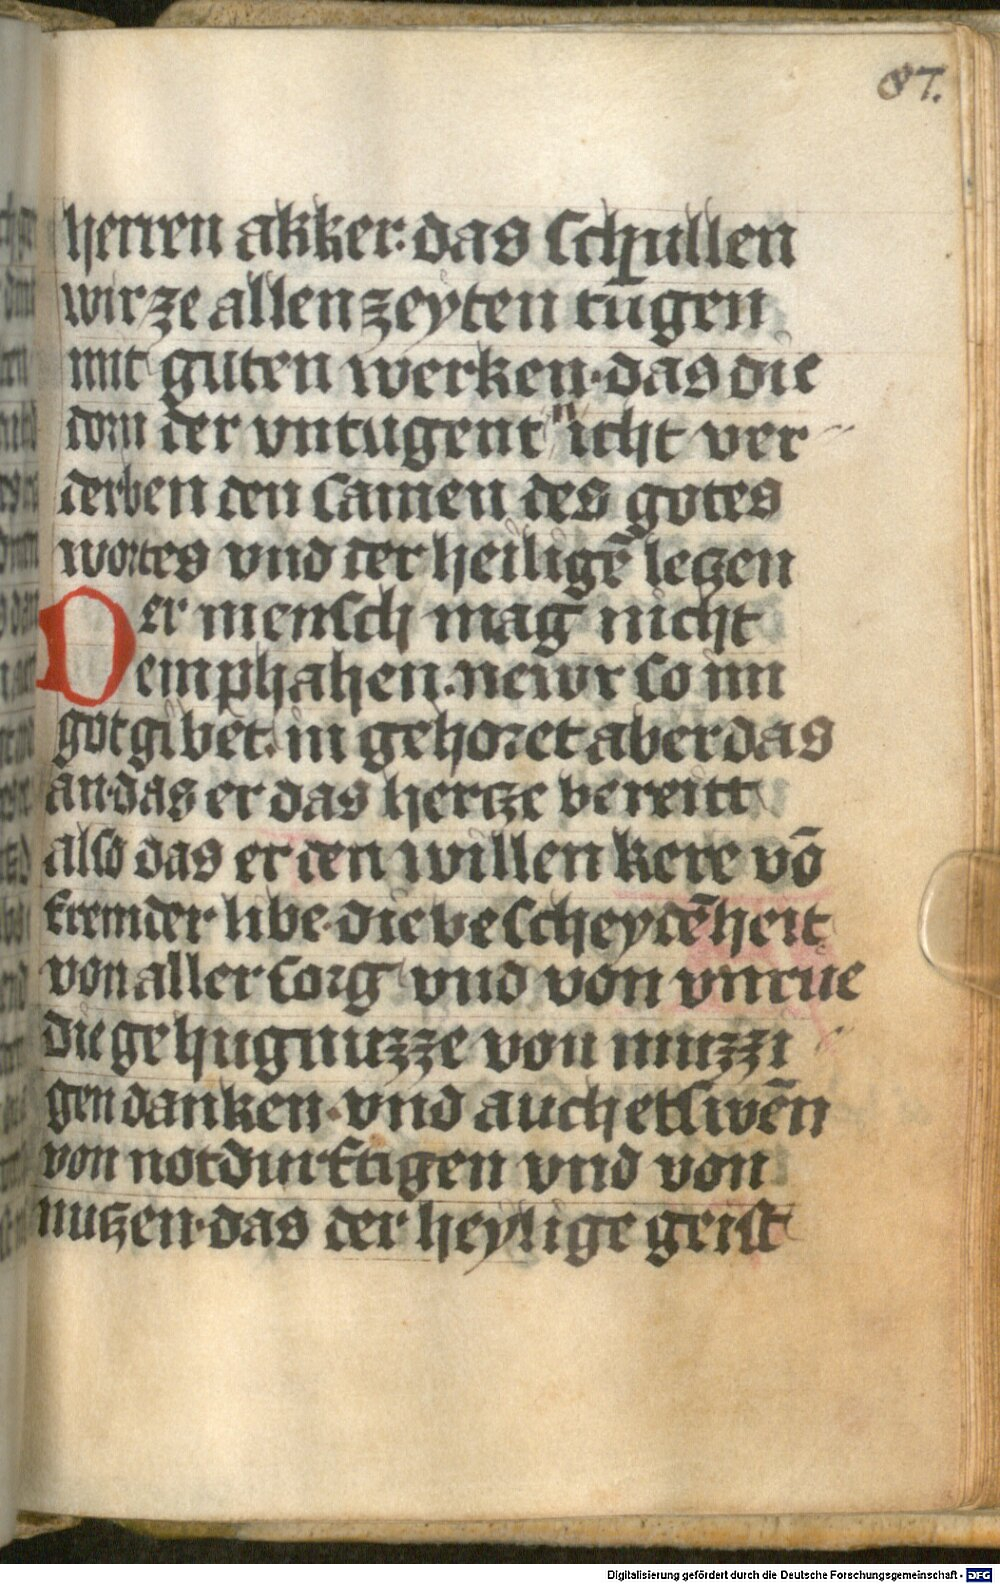 87.
herren akker. das schullen
wir ze allen zeyten tugen
mit guten werken. das die
dorn der vntugent nicht ver
derben den samen des gotes
wortes vnd der heiligē letzen
Der mensch mag nicht
emphahen. neivr so im
got gibet. in gehoret aber das
an. das er das hertze bereitt
also das er den willen kere vō
fremder libe. die bescheydēheit
von aller sorg vnd von vnrue
die gehugnuzze von muzzi
gen danken. vnd auch etswēn
von notdurftigen vnd von
nutzen. das der heylige geist
Digitalisierung gefördert durch die Deutsche Forschungsgemeinschaft - DFG